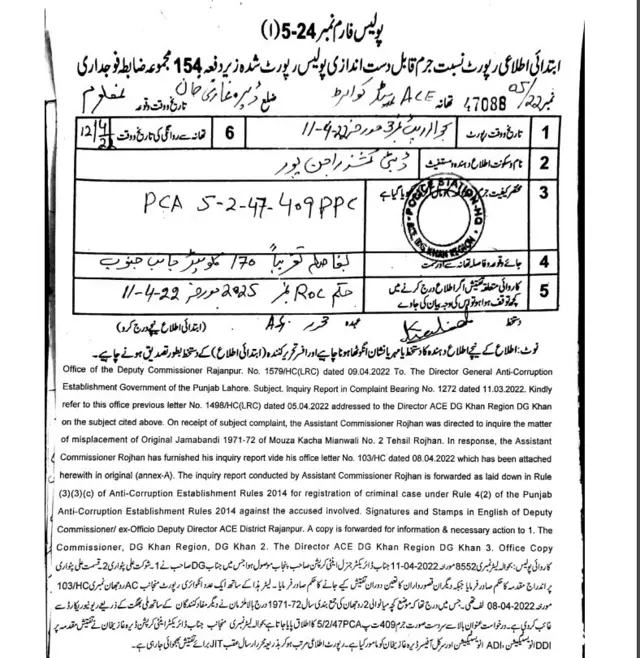 پولیس فارم نمبر 24-5 (۱)
ابتدائی اطلاعی رپورٹ نسبت جرم قابل دست اندازی پولیس رپورٹ شدہ زیر دفعہ 154 مجموعہ ضابطہ فوجداری
نمبر 05/22 47088 تھانہ ACE ہیڈ کوارٹر ضلع ڈیرہ غازی خان تاریخ و وقت وقوعہ نامعلوم
1 تاریخ و وقت رپورٹ 11-4-22 6 تھانہ سے روانگی کی تاریخ و وقت
2 نام و سکونت اطلاع دہندہ و مستغیث ڈپٹی کمشنر راجن پور
3 مختصر کیفیت جرم PCA 5-2-47-409 PPC
POLICE STATION HQ ACE DG. KHAN REGION
4 جائے وقوعہ و فاصلہ تھانہ سے اور سمت تقریباً 170 کلومیٹر جانب جنوب
5 کاروائی متعلقہ تفتیش اگر اطلاع درج کرنے میں
کچھ توقف ہوا ہو تو اس کی وجہ بیان کی جاوے حکم ROC نمبر 2025 مورخہ 11-4-22
دستخط عہدہ محرر (ابتدائی اطلاع نیچے درج کرو)
نوٹ: اطلاع کے نیچے اطلاع دہندہ کا دستخط یا مہر یا نشان انگوٹھا ہونا چاہیے اور افسر تحریر کنندہ (ابتدائی اطلاع) کے دستخط بطور تصدیق ہونے چاہیے۔
Office of the Deputy Commissioner Rajanpur. No. 1579/HC(LRC) dated 09.04.2022 To. The Director General Anti-Corruption
Establishment Government of the Punjab Lahore. Subject. Inquiry Report in Complaint Bearing No. 1272 dated 11.03.2022. Kindly
refer to this office previous letter No. 1498/HC(LRC) dated 05.04.2022 addressed to the Director ACE DG Khan Region DG Khan
on the subject cited above. On receipt of subject complaint, the Assistant Commissioner Rojhan was directed to inquire the matter
of misplacement of Original Jamabandi 1971-72 of Mouza Kacha Mianwali No. 2 Tehsil Rojhan. In response, the Assistant
Commissioner Rojhan has furnished his inquiry report vide his office letter No. 103/HC dated 08.04.2022 which has been attached
herewith in original (annex-A). The inquiry report conducted by Assistant Commissioner Rojhan is forwarded as laid down in Rule
(3)(3)(c) of Anti-Corruption Establishment Rules 2014 for registration of criminal case under Rule 4(2) of the Punjab
Anti-Corruption Establishment Rules 2014 against the accused involved. Signatures and Stamps in English of Deputy
Commissioner/ ex-Officio Deputy Director ACE District Rajanpur. A copy is forwarded for information & necessary action to 1. The
Commissioner, DG Khan Region, DG Khan 2. The Director ACE DG Khan Region DG Khan 3. Office Copy
کاروائی پولیس: بحوالہ لیٹر نمبری 8552 مورخہ 11-04-2022 جناب ڈائریکٹر جنرل اینٹی کرپشن صاحب پنجاب موصول ہوا جس میں جناب DG صاحب نے
پر اندراج مقدمہ کا حکم صادر فرمایا جبکہ دیگران قصورواران کا تعین دوران تفتیش کیے جانے کا حکم صادر فرمایا۔ لیٹر ہذا کے ساتھ ایک عدد انکوائری رپورٹ منجانب AC روجھان نمبری 103/HC
مورخہ 08-04-2022 لف تھی۔ جس میں درج تھا کہ موضع کچہ میانوالی 2 روجھان کی جمع بندی سال 1971-72
غائب کر دی ہے۔ درخواست عنوان بالا سے سردست صورت جرم 409 ت پ 5/2/47PCA کا اطلاق پایا جاتا ہے
DDI انویسٹیگیشن، ADI انویسٹیگیشن اور سرکل آفیسر ڈیرہ غازیخان کو مامور کیا ہے۔ رپورٹ اطلاعی مرتب ہو کر بذریعہ JIT برائے تفتیش بھجوائی جا رہی ہے۔